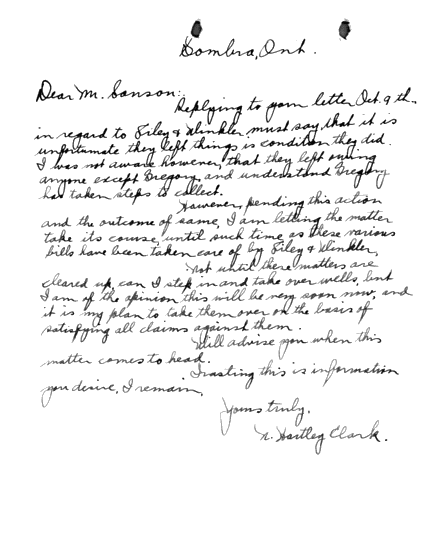 Sombra, Ont.
Dear Mr. Sanson:,
Replying to your letter Oct. 9th.
in regard to Filey & Winkler must say that it is
unfortunate they left things is condition they did.
I was not aware however, that they left owing
anyone except Gregory, and understand Gregory
has taken steps to collect.
However, pending this action
and the outcome of same, I am letting the matter
take its course, until such time as these various
bills have been taken care of by Filey & Winkler,
Not until these matters are
cleared up, can I step in and take over wells, but
I am of the opinion this will be very soon now, and
it is my plan to take them over on the basis of
satisfying all claims against them.
Will advise you when this
matter comes to head.
Trusting this is information
you desire, I remain,
Yours truly,
N. Hartley Clark.